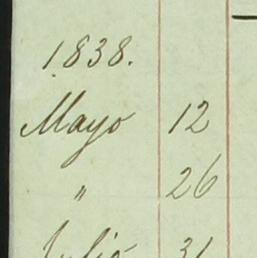 1838.
Mayo 12
" 26
Julio 31